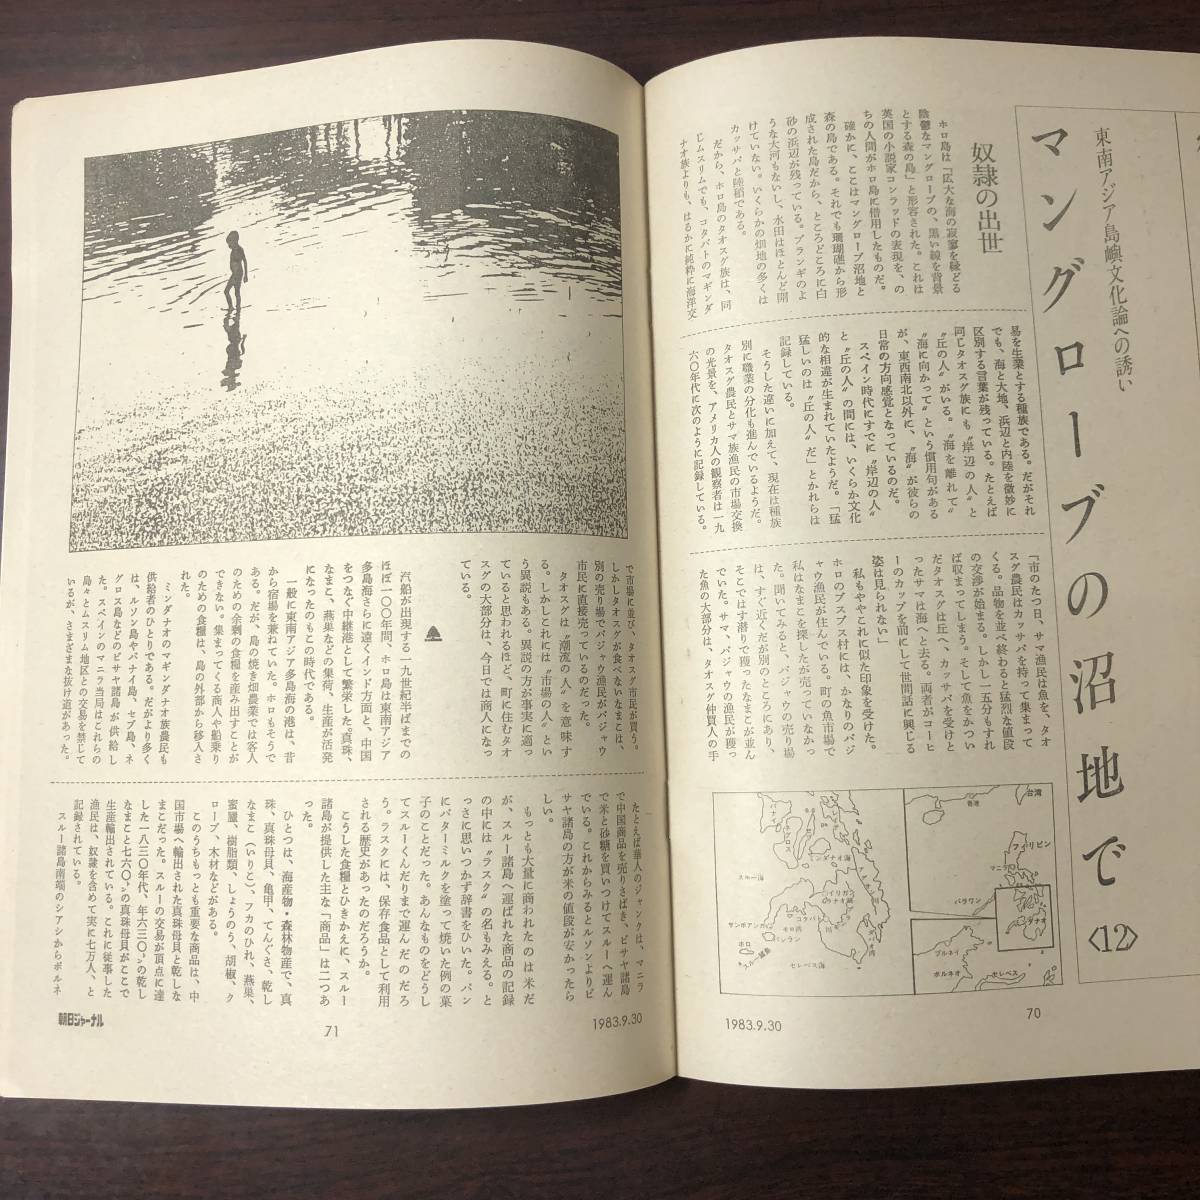 東南アジア島嶼文化論への誘い
マングローブの沼地で
〈12〉
奴隷の出世
ホロ島は「広大な海の寂寥を縁どる
陰鬱なマングローブの、黒い線を背景
とする森の島」と形容された。これは
英国の小説家コンラッドの表現を、の
ちの人間がホロ島に借用したものだ。
確かに、ここはマングローブ沼地と
森の島である。それでも珊瑚礁から形
成された島だから、ところどころに白
砂の浜辺が残っている。プランギのよ
うな大河もないし、水田はほとんど開
けていない。いくらかの畑地の多くは
カッサバと陸稲である。
だから、ホロ島のタオスグ族は、同
じムスリムでも、コタバトのマギンダ
ナオ族よりも、はるかに純粋に海洋交
易を生業とする種族である。だがそれ
でも、海と大地、浜辺と内陸を微妙に
区別する言葉が残っている。たとえば
同じタオスグ族にも〝岸辺の人〟と
〝丘の人〟がいる。〝海を離れて〟
〝海に向かって〟という慣用句がある
が、東西南北以外に、〝海〟が彼らの
日常の方向感覚となっているのだ。
スペイン時代にすでに〝岸辺の人〟
と〝丘の人〟の間には、いくらか文化
的な相違が生まれていたようだ。「猛
猛しいのは〝丘の人〟だ」とかれらは
記録している。
そうした違いに加えて、現在は種族
別に職業の分化も進んでいるようだ。
タオスグ農民とサマ族漁民の市場交換
の光景を、アメリカ人の観察者は一九
六〇年代に次のように記録している。
「市のたつ日、サマ漁民は魚を、タオ
スグ農民はカッサバを持って集まって
くる。品物を並べ終わると猛烈な値段
の交渉が始まる。しかし一五分もすれ
ば収まってしまう。そして魚をかつい
だタオスグは丘へ、カッサバを受けと
ったサマは海へと去る。両者がコーヒ
ーのカップを前にして世間話に興じる
姿は見られない」
私もややこれに似た印象を受けた。
ホロのブスブス村には、かなりのバジ
ャウ漁民が住んでいる。町の魚市場で
私はなまこを探したが売っていなかっ
た。聞いてみると、バジャウの売り場
は、すぐ近くだが別のところにあり、
そこではす潜りで獲ったなまこが並ん
でいた。サマ、バジャウの漁民が獲っ
た魚の大部分は、タオスグ仲買人の手
台湾
香港
フィリピン
マニラ
パラワン
ダナオ
ブルネイ
ボルネオ
セレベス
ミンダナオ海
スルー海
サンボアンガ
バシラン
ホロ
スルー諸島
モロ湾
セレベス海
1983.9.30
70
で市場に並び、タオスグ市民が買う。
しかしタオスグが食べないなまこは、
別の売り場でバジャウ漁民がバジャウ
市民に直接売っているのだった。
タオスグは〝潮流の人〟を意味す
る。しかしこれには〝市場の人〟とい
う異説もある。異説の方が事実に適っ
ていると思われるほど、町に住むタオ
スグの大部分は、今日では商人になっ
ている。
汽船が出現する一九世紀半ばまでの
ほぼ一〇〇年間、ホロ島は東南アジア
多島海さらに遠くインド方面と、中国
をつなぐ中継港として繁栄した。真珠、
なまこ、燕巣などの集荷、生産が活発
になったのもこの時代である。
一般に東南アジア多島海の港は、昔
から宿場を兼ねていた。ホロもそうで
ある。だが、島の焼き畑農業では客人
のための余剰の食糧を産み出すことが
できない。集まってくる商人や船乗り
のための食糧は、島の外部から移入さ
れた。
ミンダナオのマギンダナオ族農民も
供給者のひとりである。だがより多く
は、ルソン島やパナイ島、セブ島、ネ
グロス島などのビサヤ諸島が供給し
た。スペインのマニラ当局はこれらの
島々とムスリム地区との交易を禁じて
いるが、さまざまな抜け道があった。
たとえば華人のジャンクは、マニラ
で中国商品を売りさばき、ビサヤ諸島
で米と砂糖を買いつけてスルーへ運ん
でいる。これからみるとルソンよりビ
サヤ諸島の方が米の値段が安かったら
しい。
もっとも大量に商われたのは米だ
が、スルー諸島へ運ばれた商品の記録
の中には〝ラスク〟の名もみえる。と
っさに思いつかず辞書をひいた。パン
にバターミルクを塗って焼いた例の菓
子のことだった。あんなものをどうし
てスルーくんだりまで運んだのだろ
う。ラスクには、保存食品として利用
される歴史があったのだろうか。
こうした食糧とひきかえに、スルー
諸島が提供した主な「商品」は二つあ
った。
ひとつは、海産物・森林物産で、真
珠、真珠母貝、亀甲、てんぐさ、乾し
なまこ（いりこ）、フカのひれ、燕巣、
蜜蠟、樹脂類、しょうのう、胡椒、ク
ローブ、木材などがある。
このうちもっとも重要な商品は、中
国市場へ輸出された真珠母貝と乾しな
まこだった。スルーの交易が頂点に達
した一八三〇年代、年六三〇㌧の乾し
なまこと七六〇㌧の真珠母貝がここで
生産輸出されている。これに従事した
漁民は、奴隷を含めて実に七万人、と
記録されている。
スルー諸島南端のシアシからボルネ
1983.9.30
71
朝日ジャーナル